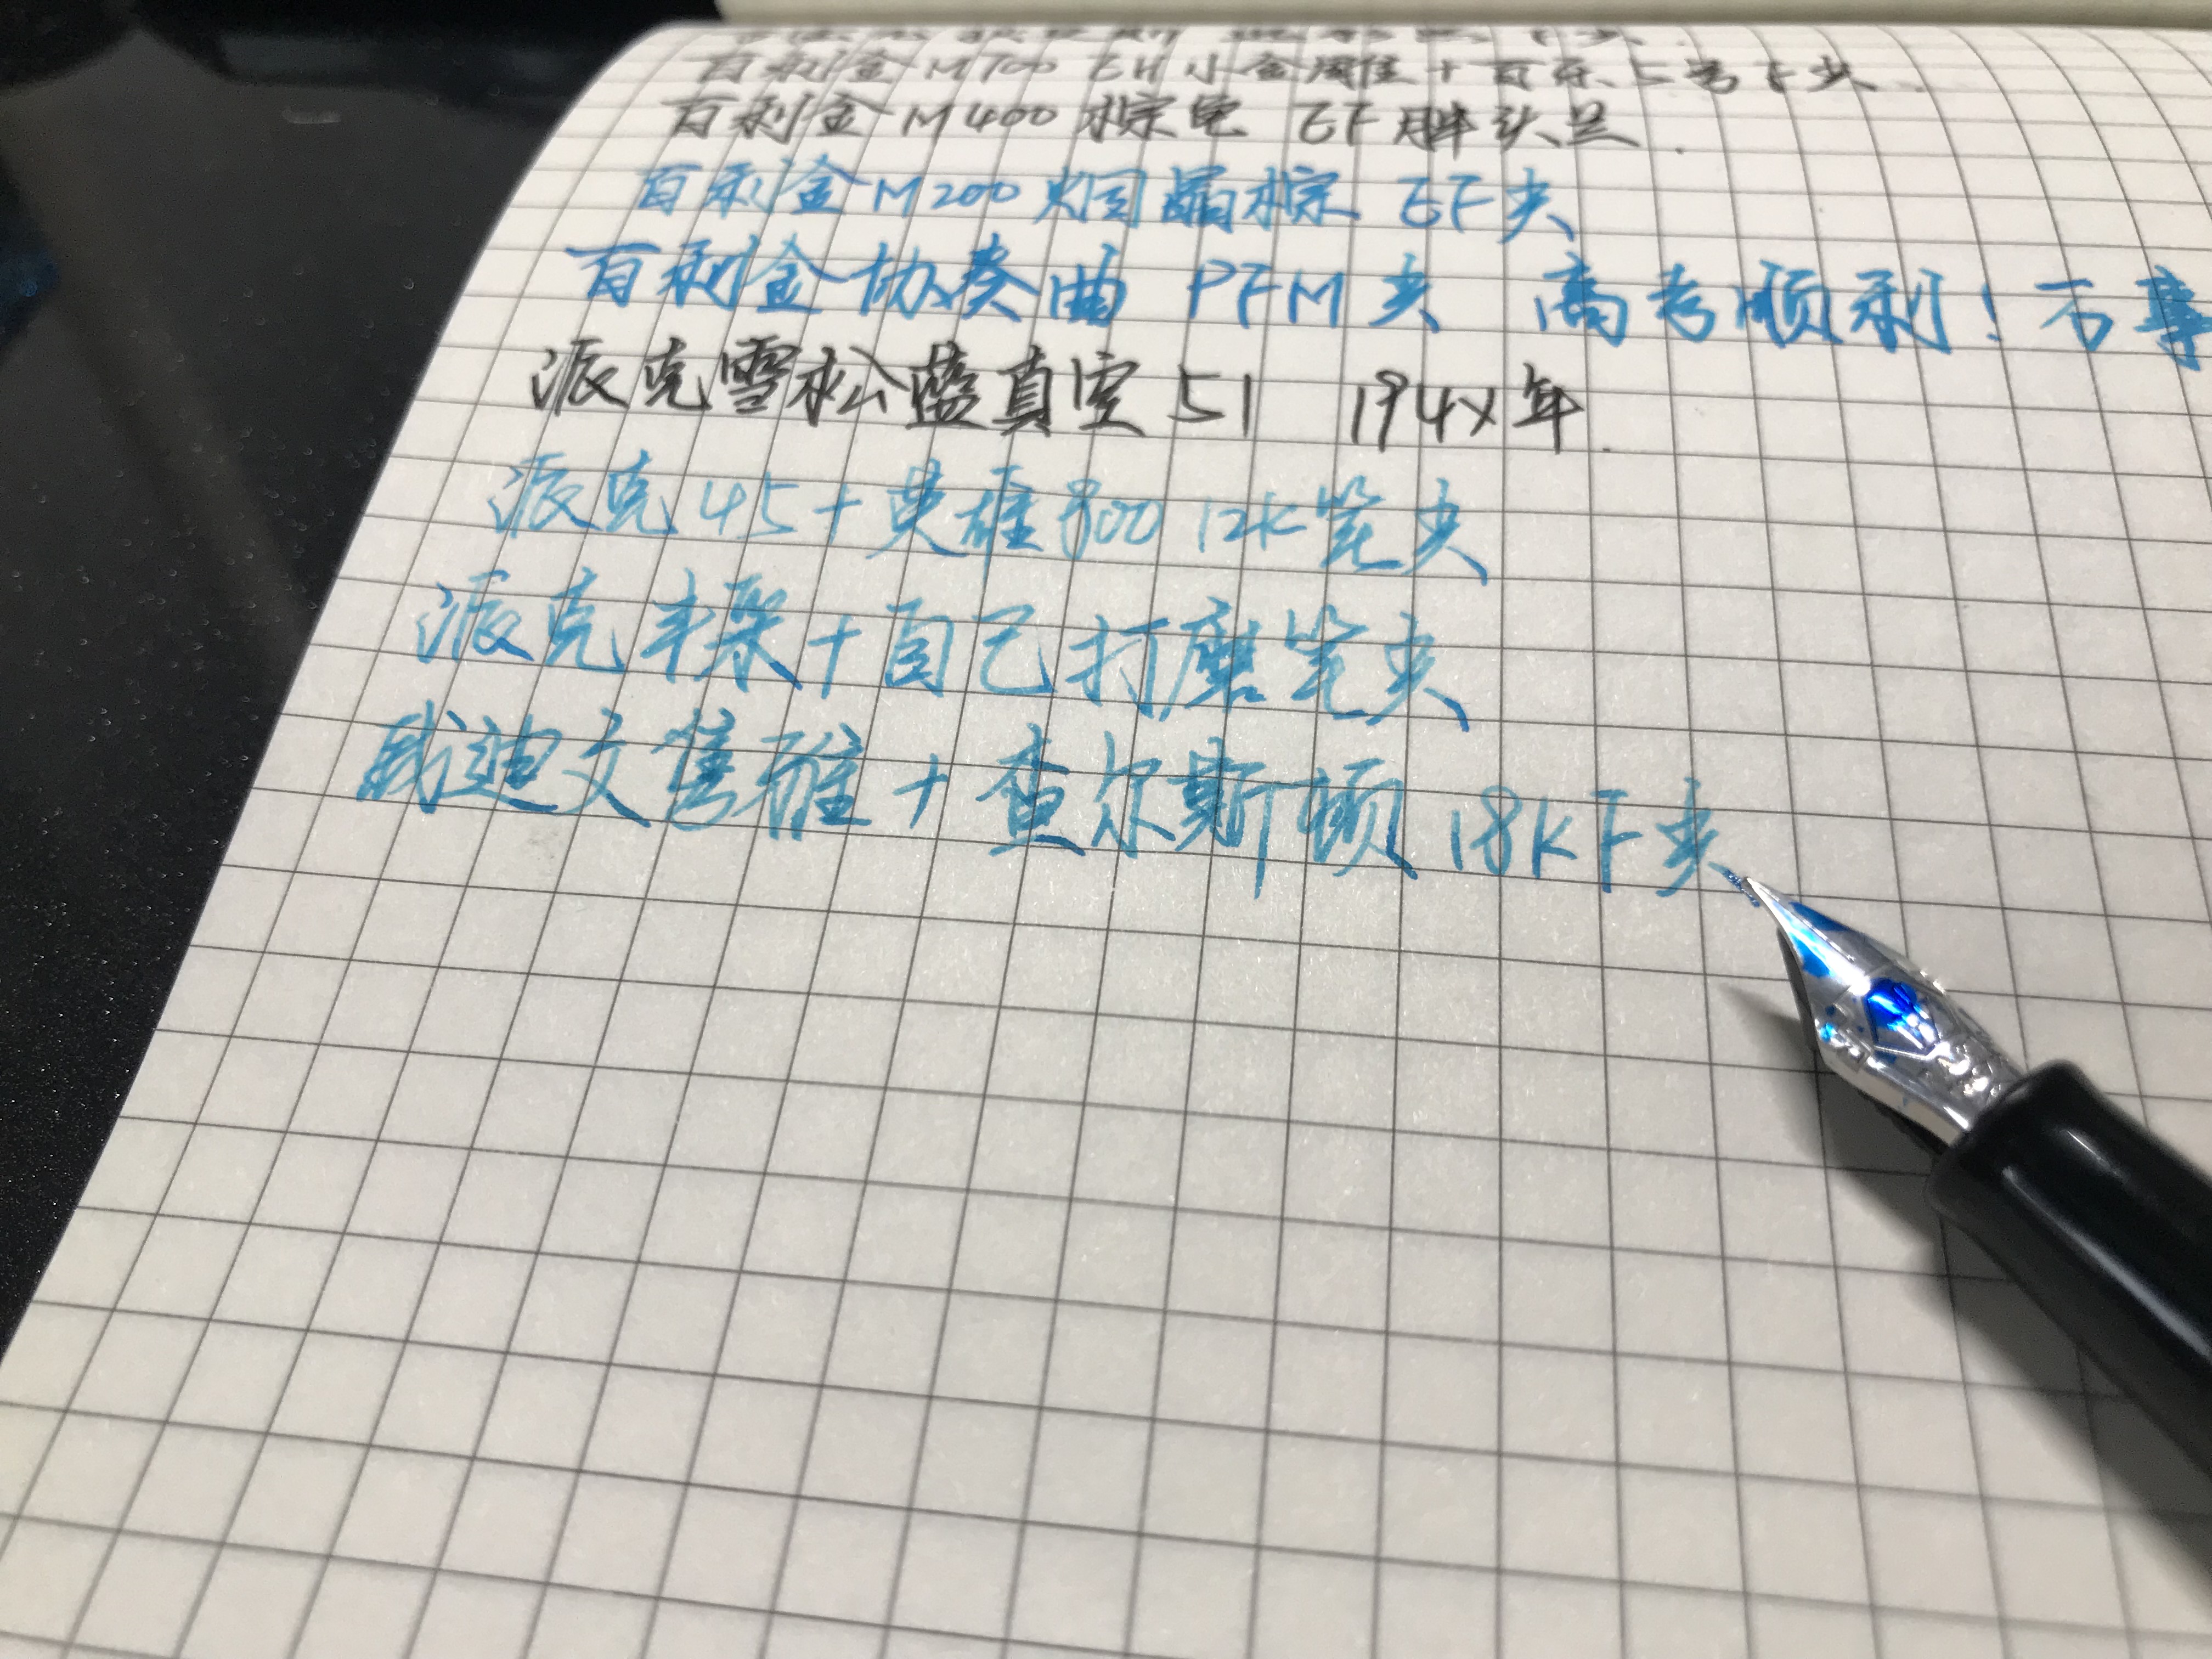 百利金 M700 EH 小金周佳 + 百乐 5号 F尖.
百利金 M400 棕龟 EF 胖头兰.
百利金 M200 烟晶棕 EF尖
百利金协奏曲 PFM尖 高考顺利! 万事
派克雪松蓝真空51 194X年.
派克45+英雄800 12K笔尖
派克丰采+自己打磨笔尖
威迪文隽雅+查尔斯顿 18KF尖